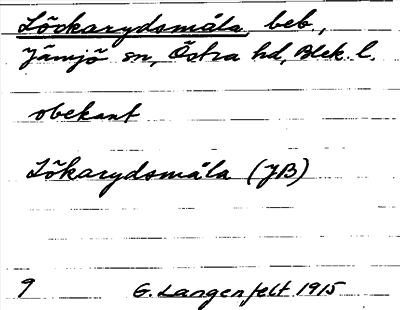 Lövkarydsmåla, beb.,
Jämjö sn, Östra hd, Blek. l.
obekant
Lökarydsmåla (JB)
9 G. Langenfelt 1915